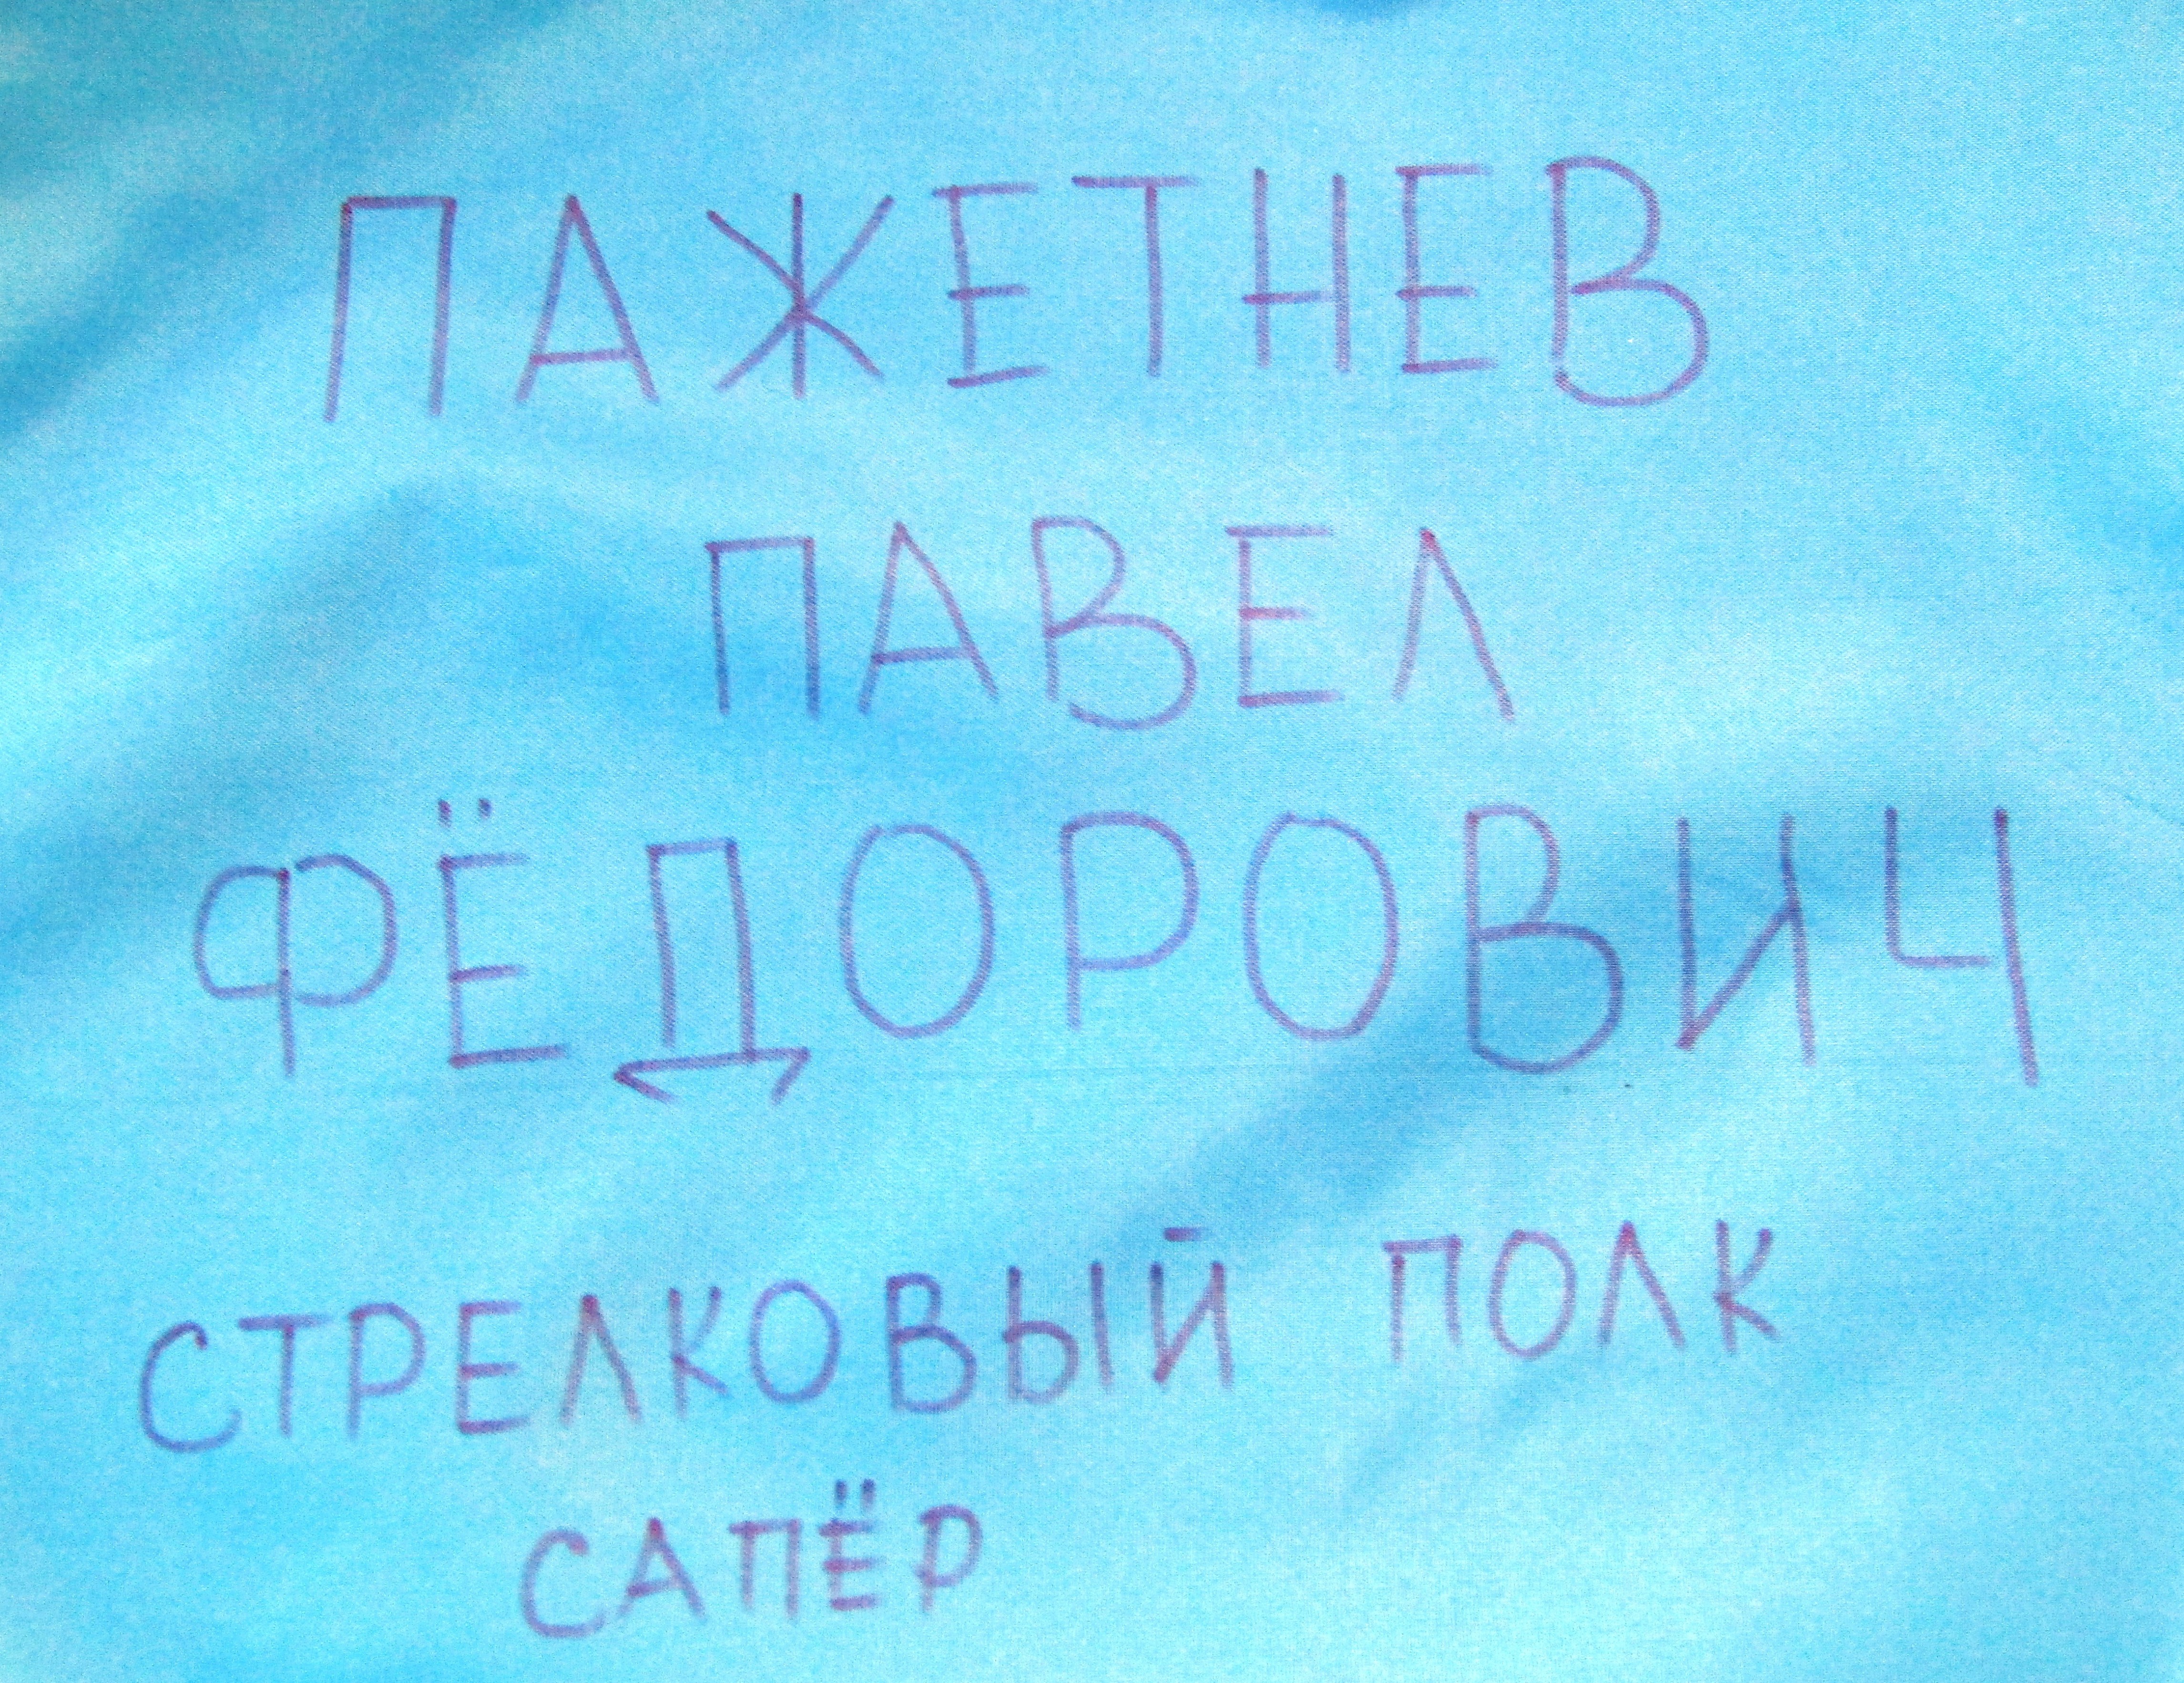 ПАЖЕТНЕВ
ПАВЕЛ
ФЁДОРОВИЧ
СТРЕЛКОВЫЙ ПОЛК
САПЁР